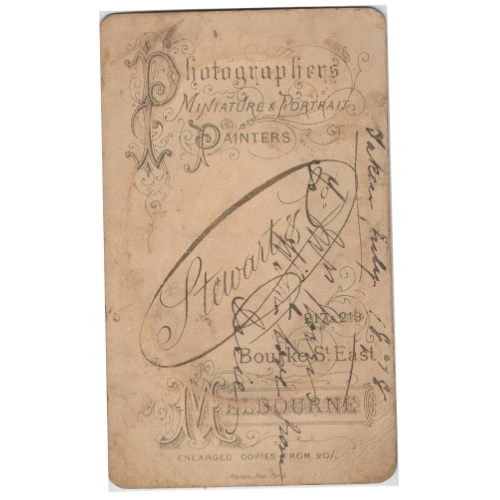 Photographers
MINIATURE & PORTRAIT
PAINTERS
Stewart & Co
217 & 219
Bourke St. East
MELBOURNE
ENLARGED COPIES FROM 20/-
Taken July 1878
To Mrs
love from